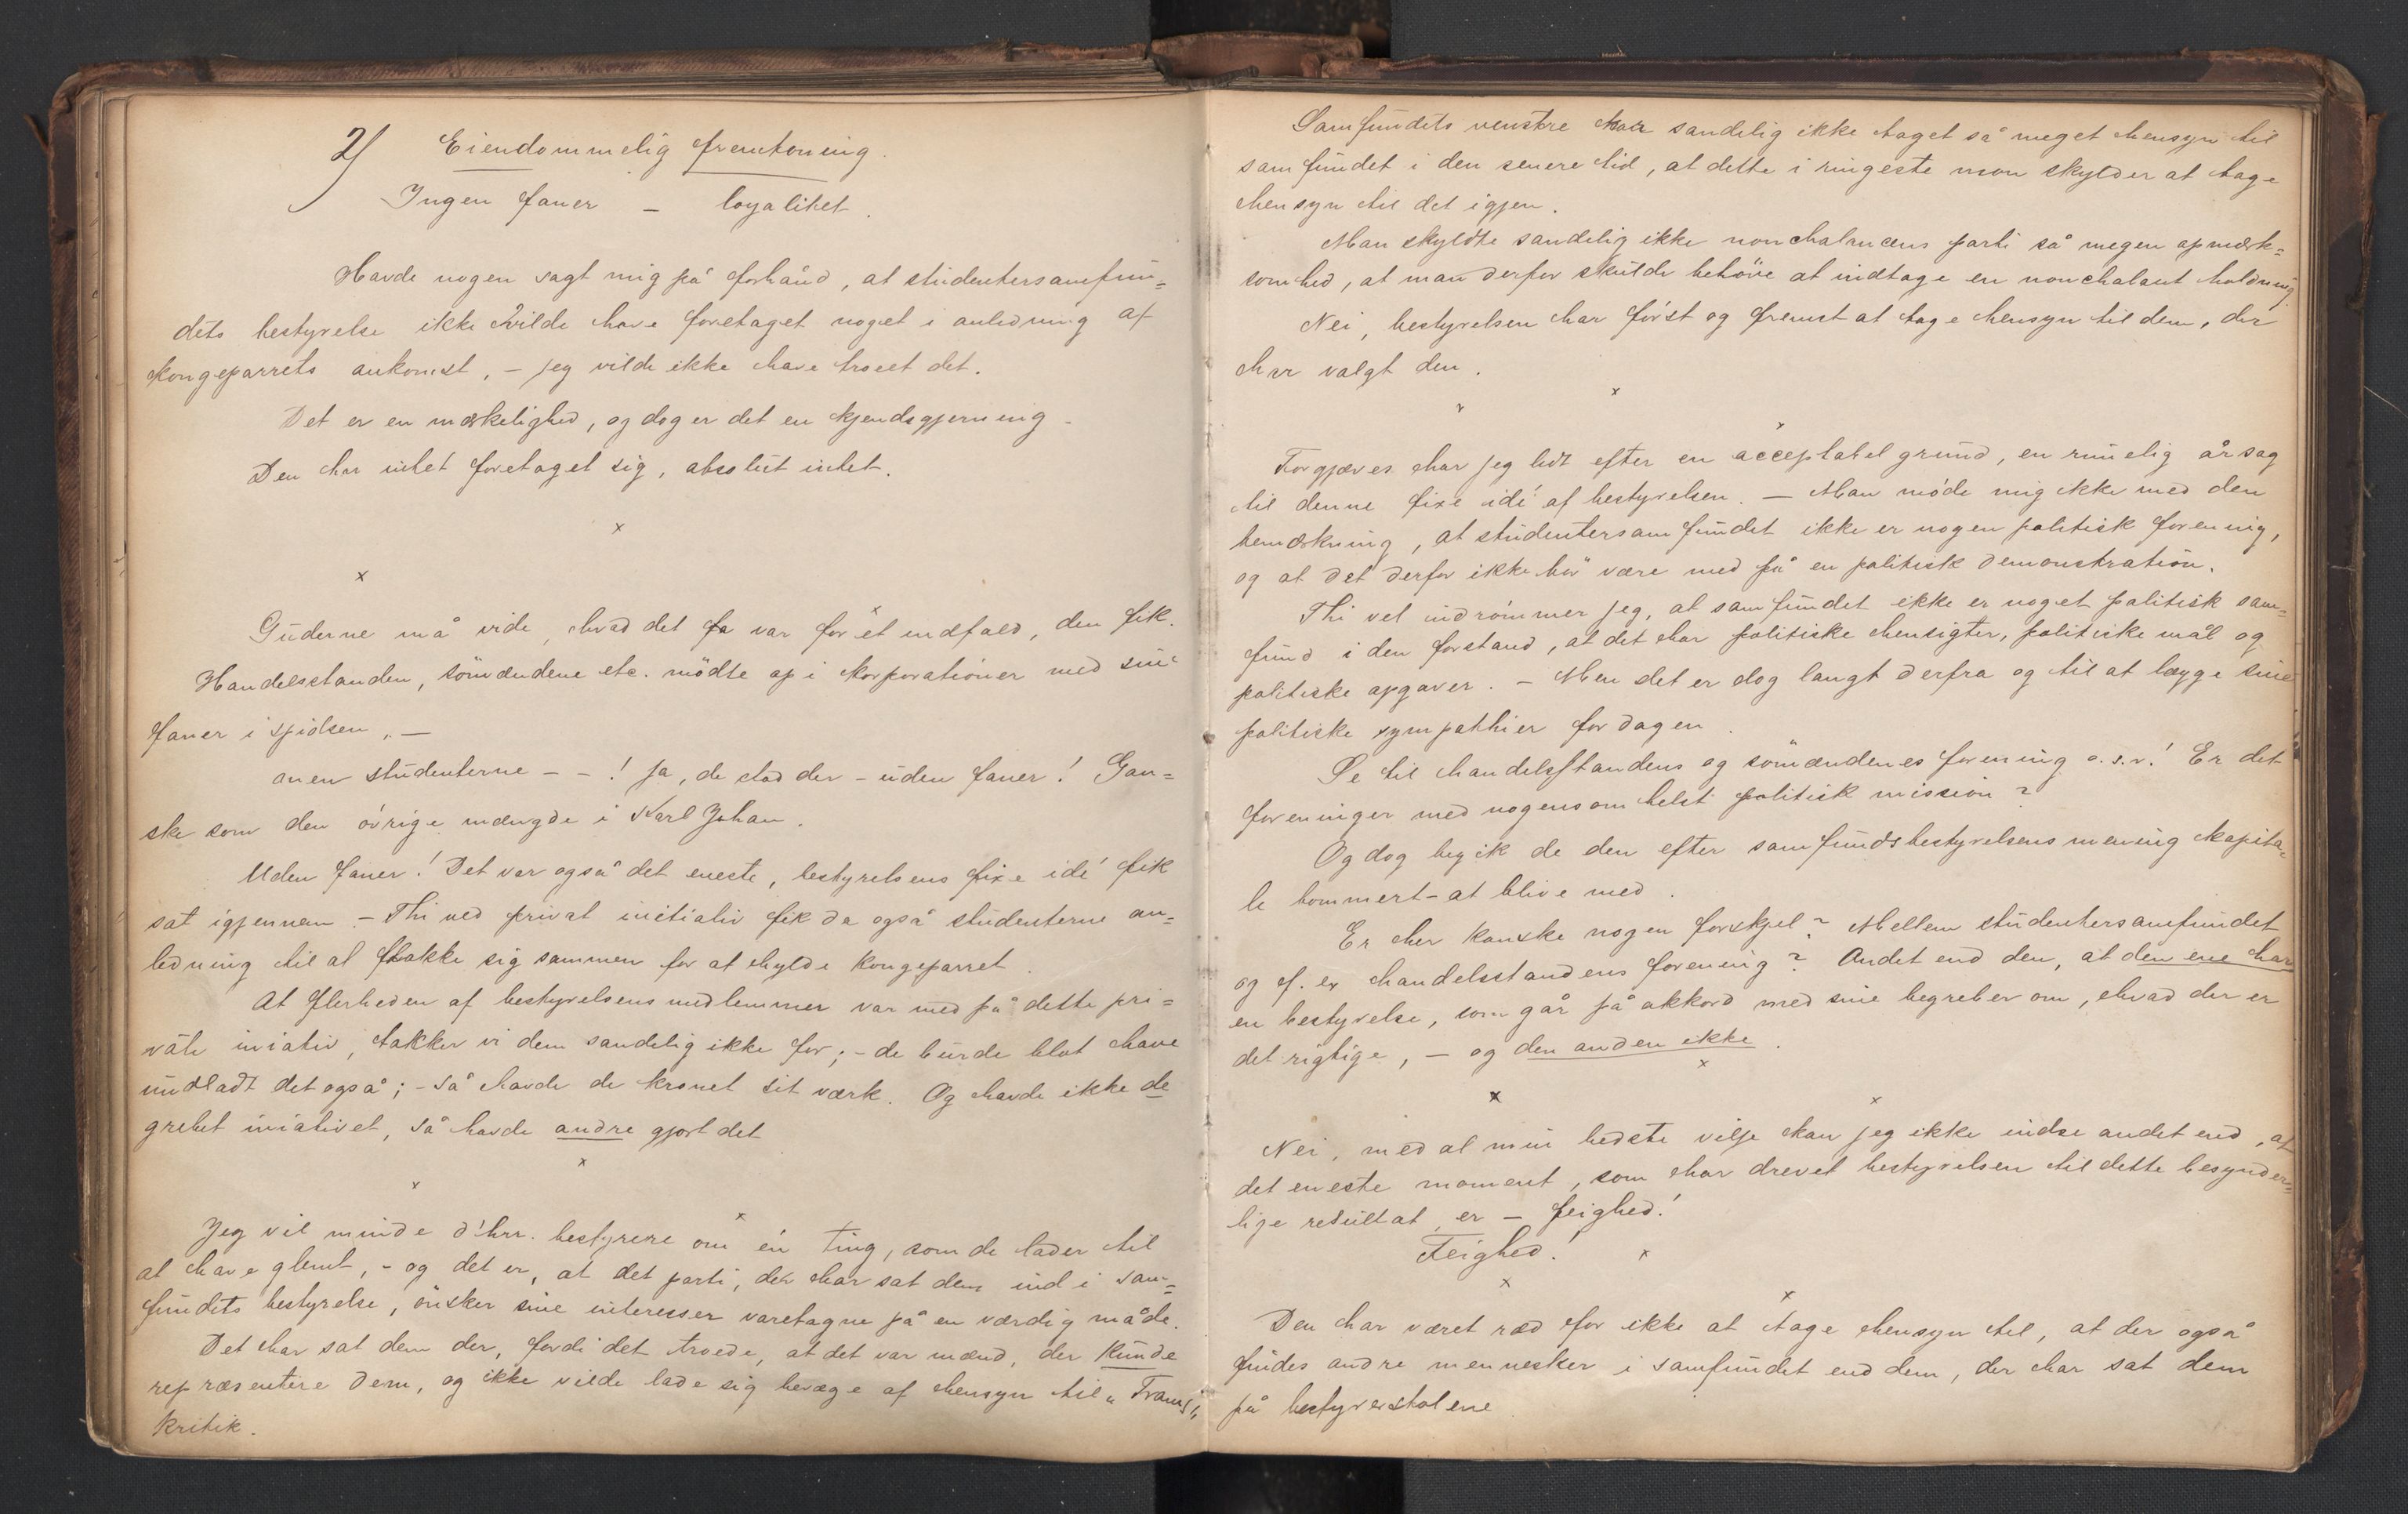 2/ Eiendommelig fremtoning.
Ingen faner – loyalitet.
Havde nogen sagt mig på forhånd, at studentersamfun=
dets bestyrelse ikke vilde have foretaget noget i anledning af
kongeparrets ankomst, – jeg vilde ikke have troet det.
Det er en mærkelighed, og dog er det en kjendsgjerning –
Den har intet foretaget sig, absolut intet.
x
x
x
Guderne må vide, hvad det var for et indfald, den fik.
Handelsstanden, sömændene etc. mödte op i korporationer med sine
faner i spidsen, –
men studenterne – – ! Ja, de stod der – uden faner! Gan=
ske som den övrige mængde i Karl Johan.
Uden faner! Det var også det eneste, bestyrelsens fixe idé fik
sat igjennem. – Thi ved privat initiativ fik da også studenterne an=
ledning til at flokke sig sammen for at hylde kongeparret.
At flerheden af bestyrelsens medlemmer var med på dette pri=
vate iniativ, takker vi dem sandelig ikke for; – de burde blot have
undladt det også; – så havde de kronet sit værk. Og havde ikke de
grebet iniativet, så havde andre gjort det
x
x
x
Jeg vil minde d'hrr. bestyrere om én ting, som de lader til
at have glemt, – og det er, at det parti, der har sat dem ind i sam=
fundets bestyrelse, önsker sine interesser varetagne på en værdig måde.
Det har sat dem der, fordi det troede, at det var mænd, der kunde
repræsentere dem, og ikke vilde lade sig bevæge af hensyn til „Frams“
kritik.
Samfundets venstre har sandelig ikke taget så meget hensyn til
samfundet i den senere tid, at dette i ringeste mon skylder at tage
hensyn til det igjen.
Man skyldte sandelig ikke nonchalancens parti så megen opmærk=
somhed, at man derfor skulde behöve at indtage en nonchalant holdning.
Nei, bestyrelsen har först og fremst at tage hensyn til dem, der
har valgt den.
x
x
x
Forgjæves har jeg ledt efter en acceptabel grund, en rimelig årsag
til denne fixe idé af bestyrelsen. – Man möde mig ikke med den
bemærkning, at studentersamfundet ikke er nogen politisk forening,
og at det derfor ikke bör være med på en politisk demonstration.
Thi vel indrömmer jeg, at samfundet ikke er noget politisk sam=
fund i den forstand, at det har politiske hensigter, politiske mål og
politiske opgaver. – Men det er dog langt derfra og til at lægge sine
politiske sympathier for dagen.
Se til handelsstandens og sömændenes forening o.s.v.! Er det
foreninger med nogensomhelst politisk mission?
Og dog begik de den efter samfundsbestyrelsens mening kapita=
le bommert – at blive med.
Er her kanske nogen forskjel? Mellem studentersamfundet
og f. ex handelsstandens forening? Andet end den, at den ene har
en bestyrelse, som går på akkord med sine begreber om, hvad der er
det rigtige, – og den anden ikke.
x
x
x
Nei, med al min bedste vilje kan jeg ikke indse andet end, at
det eneste moment, som har drevet bestyrelsen til dette besynder=
lige resultat, er – feighed!
Feighed!
x
x
x
Den har været ræd for ikke at tage hensyn til, at der også
findes andre mennesker i samfundet end dem, der har sat dem
på bestyrerstolene